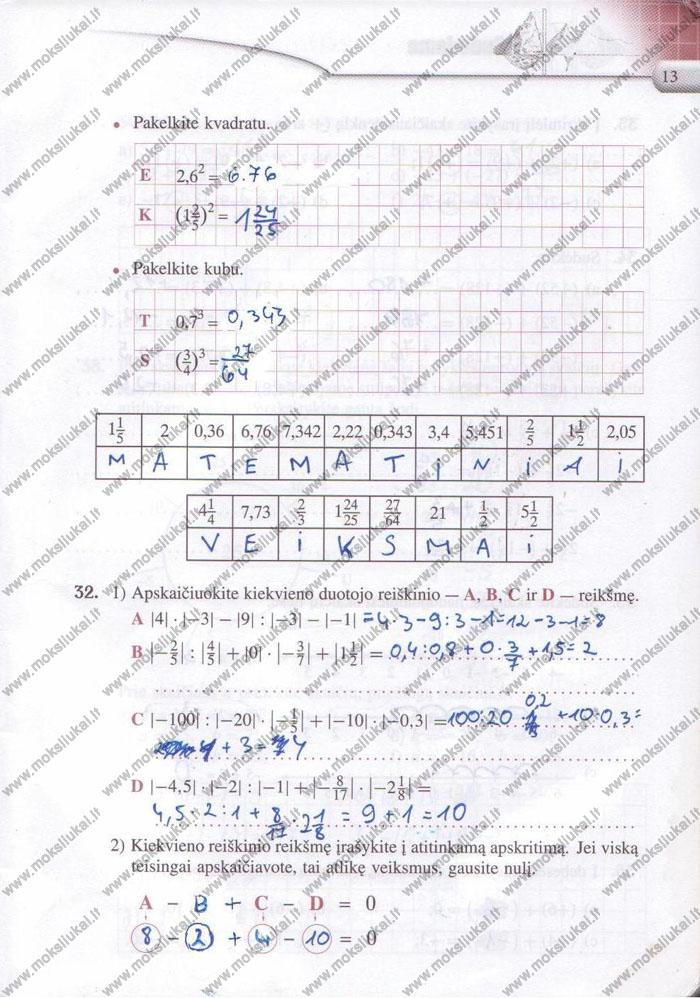 13
• Pakelkite kvadratu.
E 2,6² = 6.76
K (1 2/5)² = 1 24/25
• Pakelkite kubu.
T 0,7³ = 0,343
S (3/4)³ = 27/64
1 1/5 2 0,36 6,76 7,342 2,22 0,343 3,4 5,451 2/5 1 1/2 2,05
M A T E M A T I N I A I
4 1/4 7,73 2/3 1 24/25 27/64 21 1/2 5 1/2
V E I K S M A I
32. 1) Apskaičiuokite kiekvieno duotojo reiškinio — A, B, C ir D — reikšmę.
A |4| · |−3| − |9| : |−3| − |−1| = 4 · 3 − 9 : 3 − 1 = 12 − 3 − 1 = 8
B |−2/5| : |4/5| + |0| · |−3/7| + |1 1/2| = 0,4 : 0,8 + 0 · 3/7 + 1,5 = 2
C |−100| : |−20| · |−1/5| + |−10| · |−0,3| = 100 : 20 · 0,2 + 10 · 0,3 =
+ 3 = 4
D |−4,5| · |−2| : |−1| + |−8/17| · |−2 1/8| =
4,5 · 2 : 1 + 8/17 · 2 1/8 = 9 + 1 = 10
2) Kiekvieno reiškinio reikšmę įrašykite į atitinkamą apskritimą. Jei viską
teisingai apskaičiavote, tai atlikę veiksmus, gausite nulį.
A − B + C − D = 0
8 − 2 + 4 − 10 = 0
www.moksliukai.lt